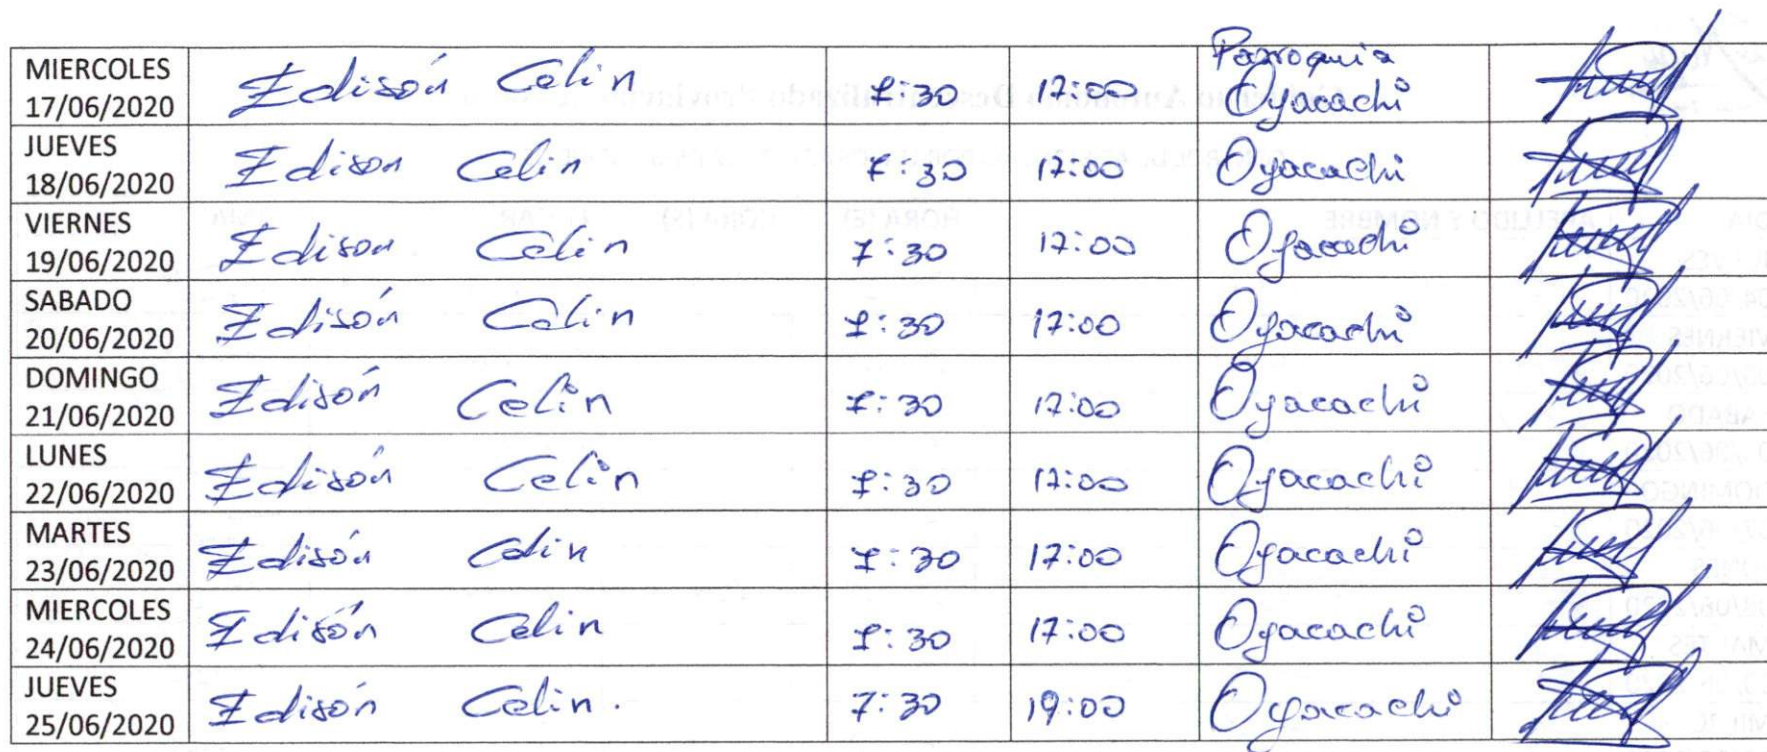 Parroquia
MIERCOLES
17/06/2020 Edisón Celin 7:30 17:00 Oyacachi
JUEVES
18/06/2020 Edison Celin 7:30 17:00 Oyacachi
VIERNES
19/06/2020 Edison Celin 7:30 17:00 Oyacachi
SABADO
20/06/2020 Edisón Celin 7:30 17:00 Oyacachi
DOMINGO
21/06/2020 Edisón Celin 7:30 17:00 Oyacachi
LUNES
22/06/2020 Edisón Celin 7:30 17:00 Oyacachi
MARTES
23/06/2020 Edisón Celin 7:30 17:00 Oyacachi
MIERCOLES
24/06/2020 Edisón Celin 7:30 17:00 Oyacachi
JUEVES
25/06/2020 Edisón Celin. 7:30 19:00 Oyacachi